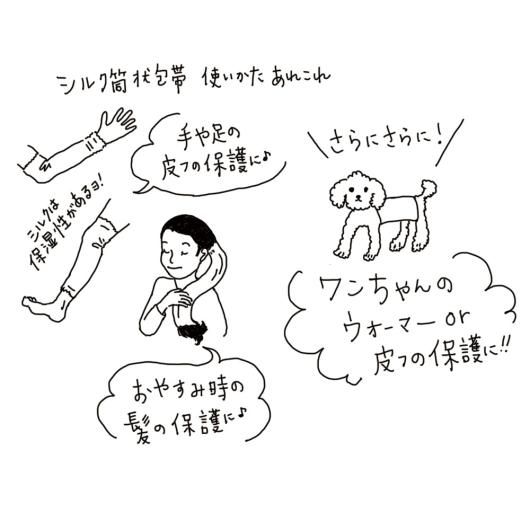 シルク筒状包帯 使いかた あれこれ
手や足の
皮フの保護に♪
シルクは
保湿性があるヨ!
おやすみ時の
髪の保護に♪
\さらにさらに!/
ワンちゃんの
ウォーマー or
皮フの保護に!!